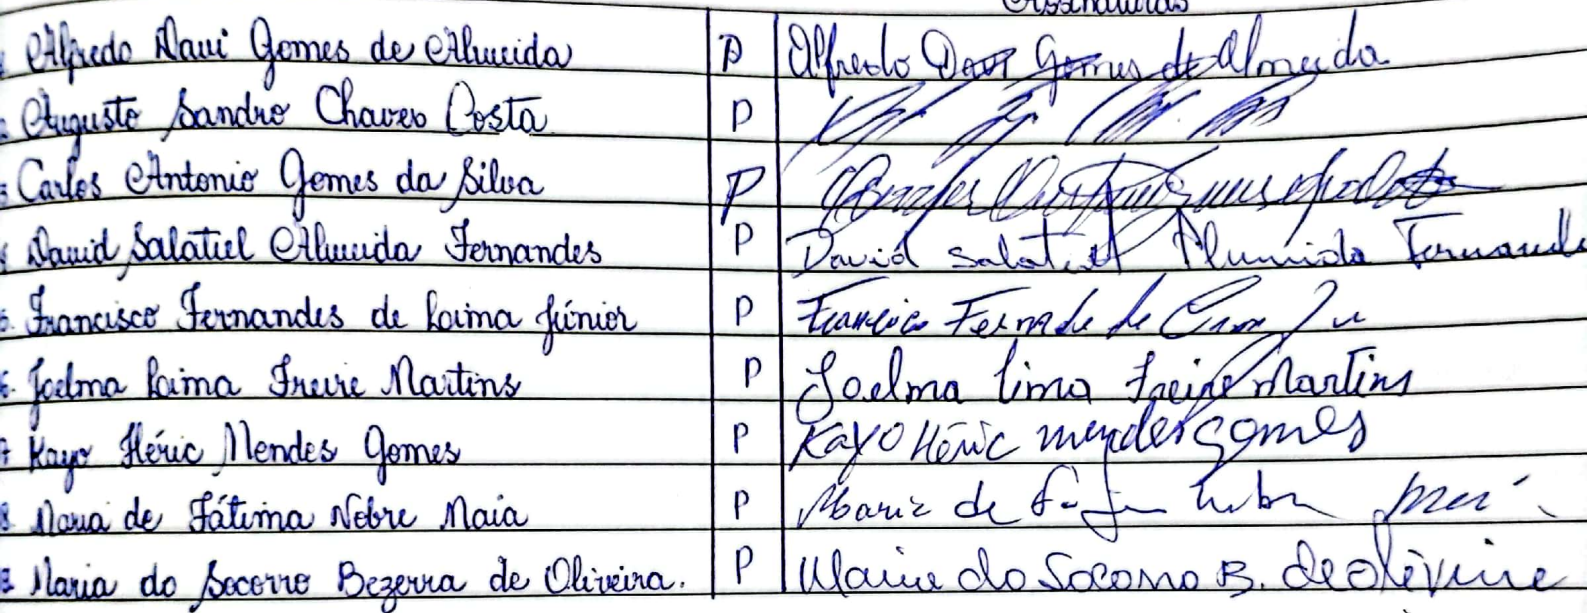 Assinaturas
Alfredo Davi Gomes de Almeida P Alfredo Davi Gomes de Almeida
Augusto Sandro Chaves Costa P
Carlos Antonio Gomes da Silva P
David Salatiel Almeida Fernandes P David Salatiel Almeida Fernande
5. Francisco Fernandes de Loima Júnior P Francisco Fernande de Lima Ju
6. Joelma Loima Freire Martins P Joelma lima Freire Martins
7 Kayo Héric Mendes Gomes P Kayo Héric mendes gomes
8. Maria de Fátima Nobre Maia P Maria de
Maria do Socorro Bezerra de Oliveira. P Maria do Socorro B. de oliveira